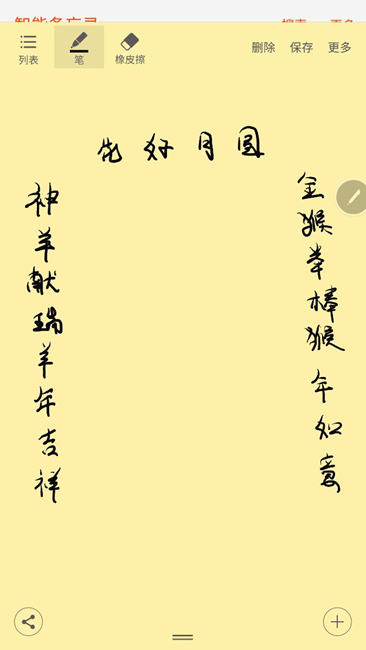 智能备忘录 搜索 更多
列表 笔 橡皮擦 删除 保存 更多
花好月圆
金猴举棒猴年如意
神羊献瑞羊年吉祥